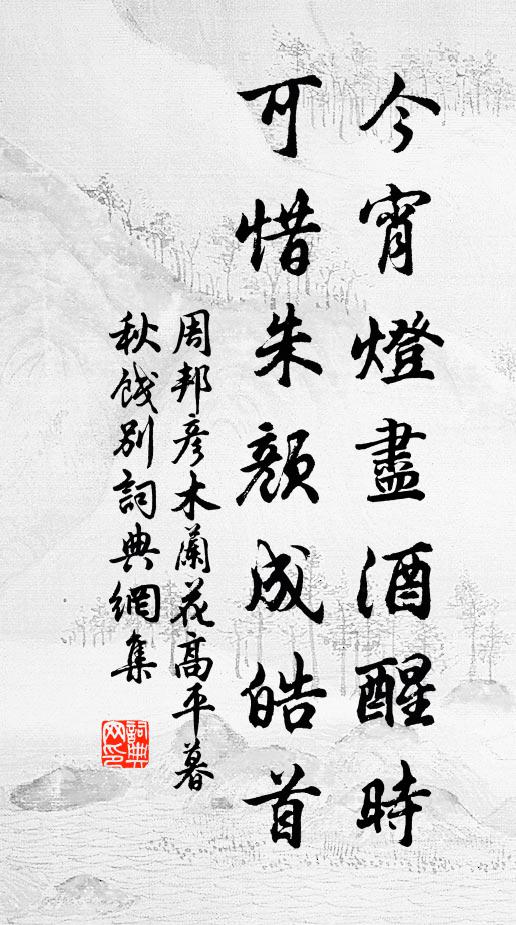 今宵燈盡酒醒時
可惜朱顏成皓首
周邦彥木蘭花高平暮
秋餞別詞典網集
詞典
网印